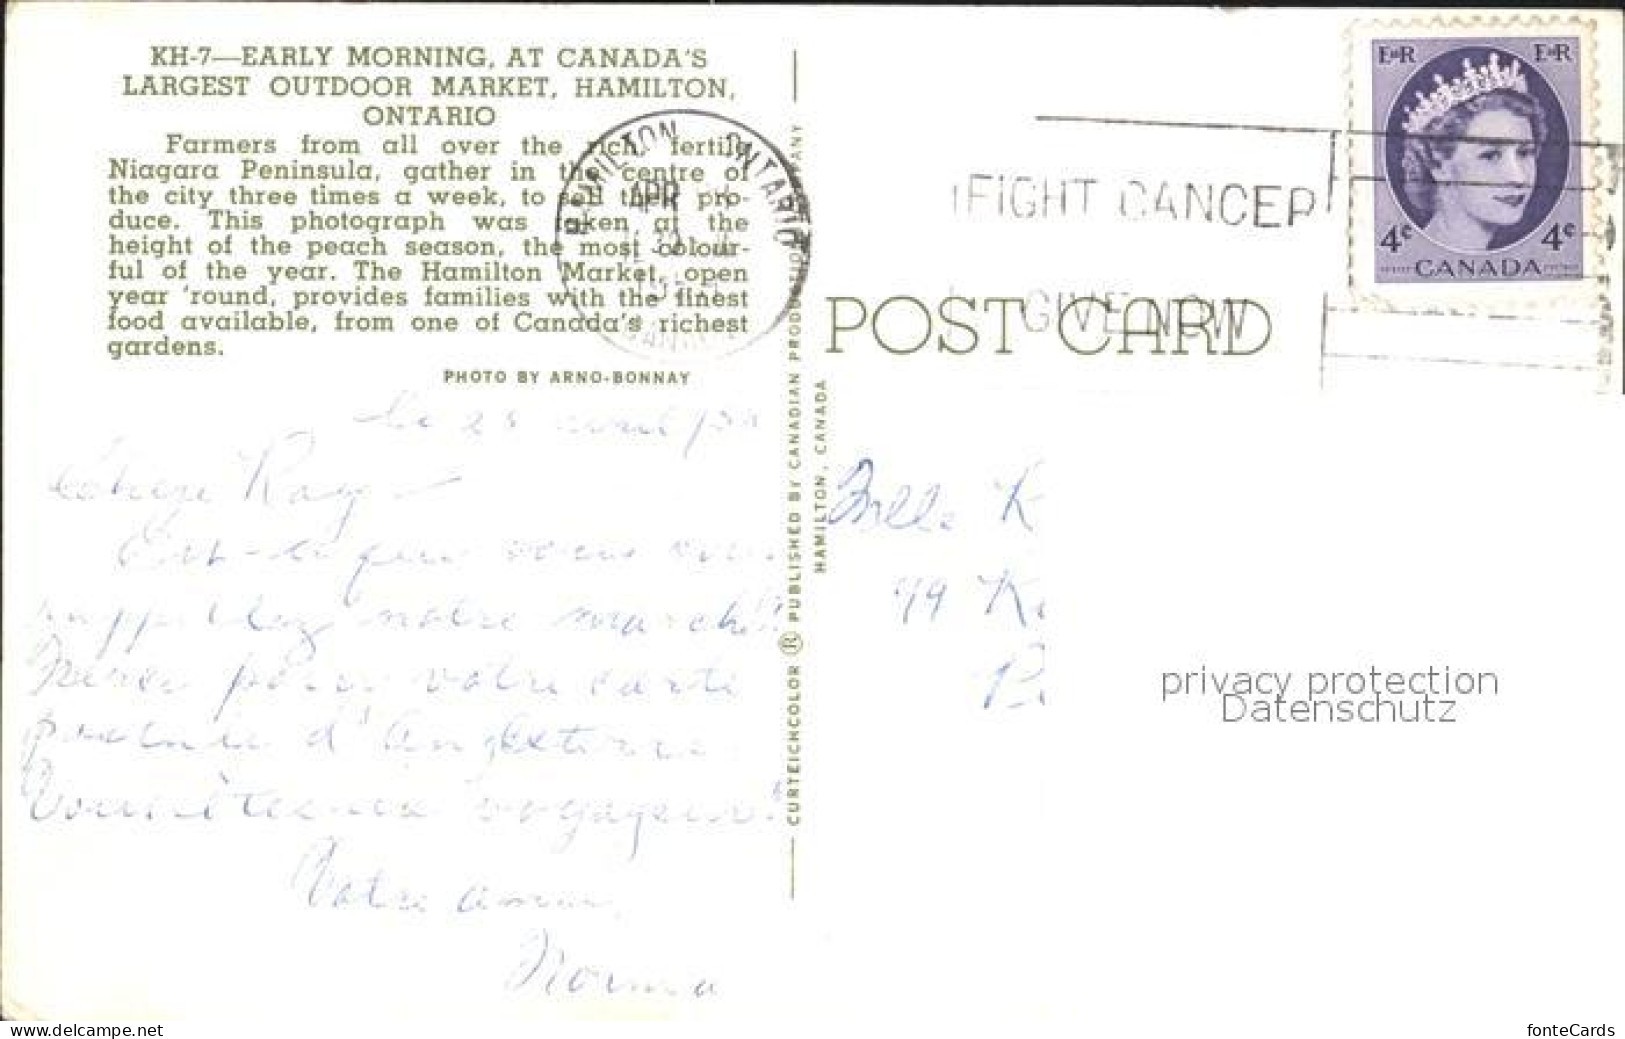 KH-7—EARLY MORNING, AT CANADA'S
LARGEST OUTDOOR MARKET, HAMILTON,
ONTARIO
Farmers from all over the rich, fertile
Niagara Peninsula, gather in the centre of
the city three times a week, to sell their pro-
duce. This photograph was taken at the
height of the peach season, the most colour-
ful of the year. The Hamilton Market, open
year 'round, provides families with the finest
food available, from one of Canada's richest
gardens.
PHOTO BY ARNO-BONNAY
HAMILTON ONTARIO
APR
FIGHT CANCER
GIVE NOW
EIIR EIIR
4¢ 4¢
CANADA
POST CARD
CURTEICHCOLOR ® PUBLISHED BY CANADIAN PRODUCTION COMPANY
HAMILTON, CANADA
avril
Chère Kay
Est-ce que vous vous
rappelez notre marché?
Merci pour votre carte
d'Angleterre
Vous êtes voyageur!
Votre amie,
Norma
Mlle K
79 K
privacy protection
Datenschutz
www.delcampe.net
fonteCards